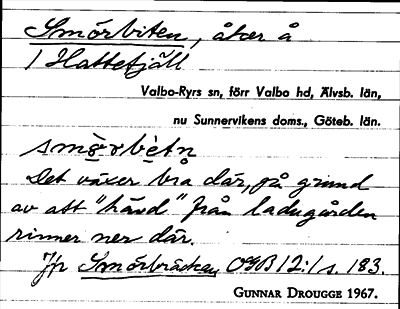 Smörbiten, åker å
1 Hattefjäll
Valbo-Ryrs sn, förr Valbo hd, Älvsb. län,
nu Sunnervikens doms., Göteb. län.
smörbetn
Det växer bra där, på grund
av att "hävd" från ladugården
rinner ner där.
Jfr Smörbräckan OGB 12:1 s. 183.
GUNNAR DROUGGE 1967.